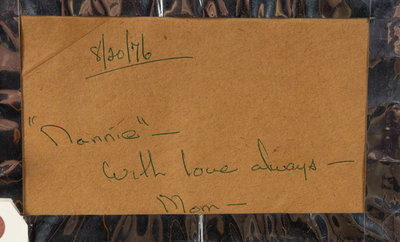 8/20/76
"Nannie" —
With love always —
Mom —